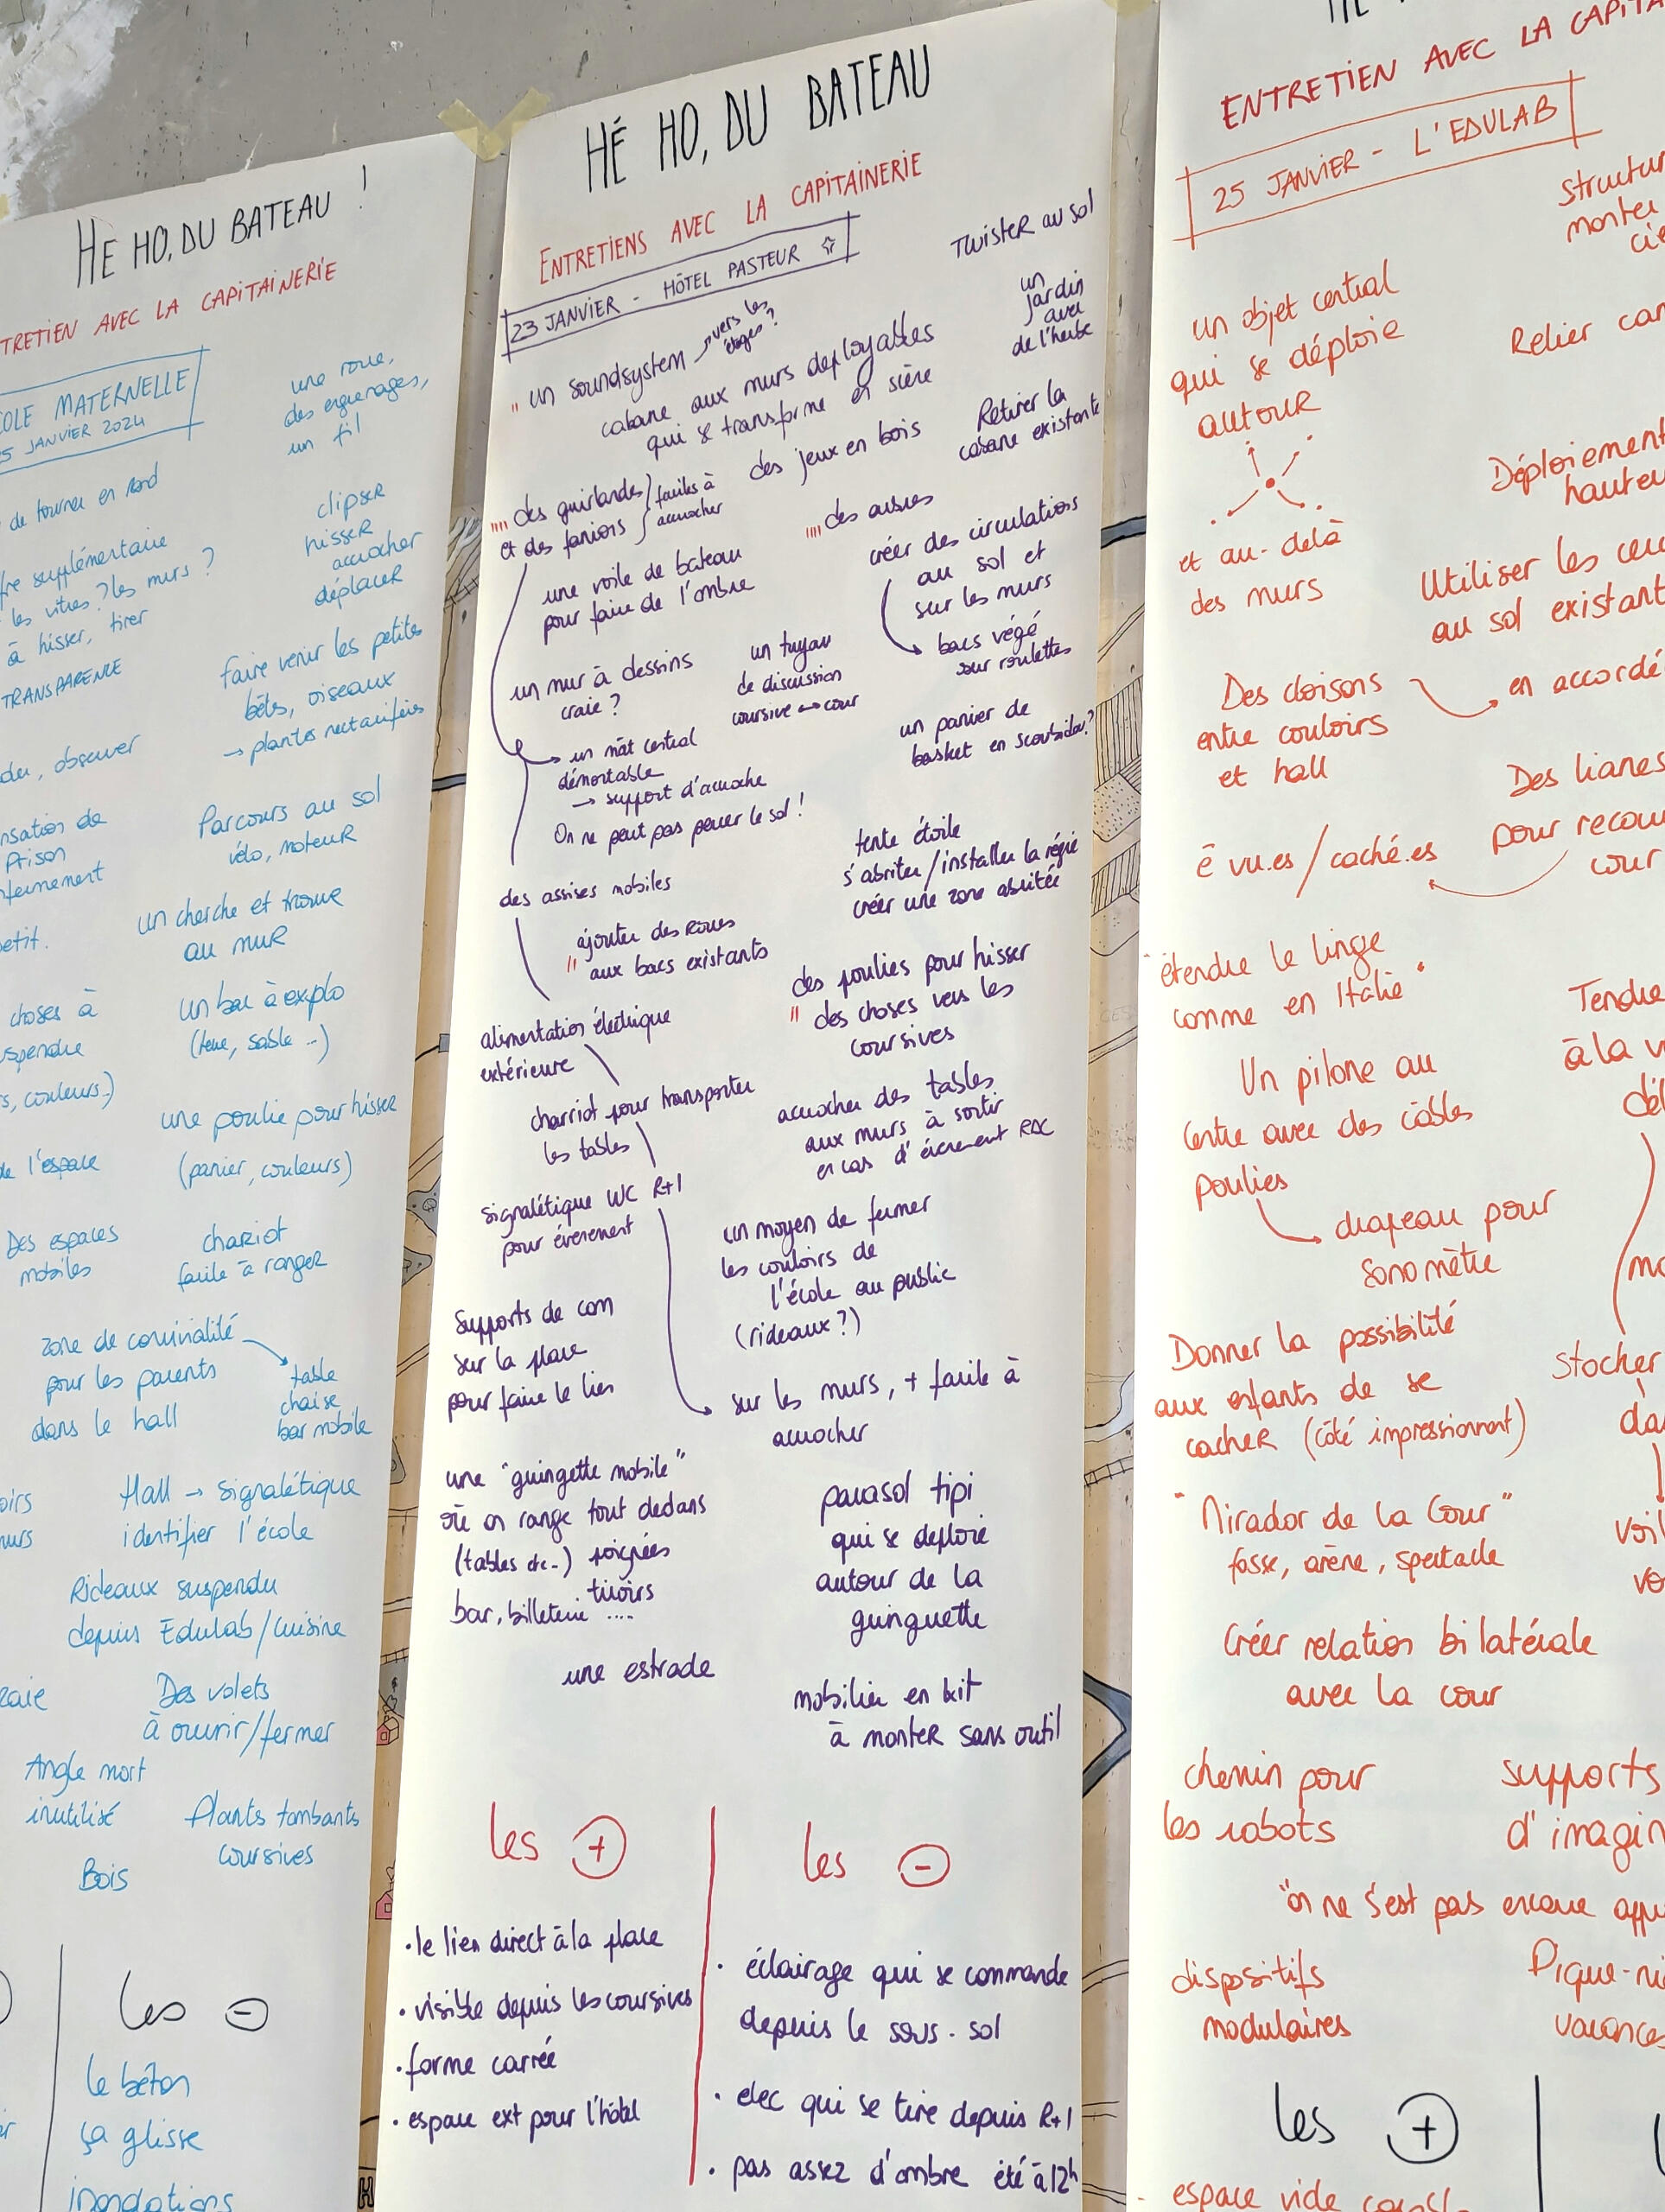 HÉ HO, DU BATEAU !
TRETIEN AVEC LA CAPITAINERIE
COLE MATERNELLE
5 JANVIER 2024
une roue,
des engrenages,
un fil
de tourner en rond
clipser
hisser
accrocher
déplacer
fre supplémentaire
les vitres ? les murs ?
à hisser, tirer
TRANSPARENCE
faire venir les petites
bêtes, oiseaux
→ plantes nectarifères
du, observer
Parcours au sol
vélo, moteur
nsation de
Prison
nfermement
un cherche et trouve
au mur
petit.
un bac à explo
(terre, sable ...)
choses à
spendre
s, couleurs..)
une poulie pour hisser
(panier, couleurs)
de l'espace
Des espaces
mobiles
chariot
facile à ranger
zone de convivialité
pour les parents
dans le hall
table
chaise
bar mobile
oirs
murs
Hall → Signalétique
identifier l'école
Rideaux suspendu
depuis Edulab/Cuisine
raie
Des volets
à ouvrir/fermer
Angle mort
inutilisé
Plants tombants
coursives
Bois
les -
le béton
ça glisse
inondations
HÉ HO, DU BATEAU
ENTRETIENS AVEC LA CAPITAINERIE
23 JANVIER - HÔTEL PASTEUR
Twister au sol
" un soundsystem → vers les
étages ?
un
jardin
avec
de l'herbe
cabane aux murs deployables
qui se transforme en scène
Retirer la
cabane existante
des jeux en bois
"" des guirlandes
et des fanions
faciles à
accrocher
"" des assises
une voile de bateau
pour faire de l'ombre
créer des circulations
au sol et
sur les murs
bacs végé
sur roulettes
un mur à dessins
craie ?
un tuyau
de discussion
coursive ↔ cour
→ un mât central
démontable
→ support d'accroche
On ne peut pas percer le sol !
un panier de
basket en scoubidou ?
tente étoile
s'abriter / installer la régie
créer une zone abritée
des assises mobiles
ajouter des roues
" aux bacs existants
des poulies pour hisser
" des choses vers les
coursives
alimentation électrique
extérieure
charriot pour transporter
les tables
accrocher des tables
aux murs à sortir
en cas d'évènement RDC
signalétique WC R+1
pour évènement
un moyen de fermer
les couloirs de
l'école au public
(rideaux ?)
Supports de com
sur la place
pour faire le lien
sur les murs, + facile à
accrocher
une "guingette mobile"
où on range tout dedans
(tables etc..) poignées
tiroirs
bar, billeterie ....
parasol tipi
qui se deploie
autour de la
guinguette
une estrade
mobilier en kit
à monter sans outil
les +
• le lien direct à la place
• visible depuis les coursives
• forme carrée
• espace ext pour l'hôtel
les -
• éclairage qui se commande
depuis le sous-sol
• elec qui se tire depuis R+1
• pas assez d'ombre été à 12h
ENTRETIEN AVEC LA CAPITA
25 JANVIER - L'EDULAB
structur
monter
cie
un objet central
qui se déploie
autour
et au-delà
des murs
Relier
Déploiement
hauteu
Utiliser les
au sol existant
Des cloisons
entre couloirs
et hall
→ en accordé
ê vu.es / caché.es
Des lianes
pour recou
cour
"étendre le linge
comme en Italie"
Un pilone au
centre avec des câbles
poulies
→ drapeau pour
sonomètre
Tendre
à la v
dé
Donner la possibilité
aux enfants de se
cacher (côté impressionnant)
Stocher
da
"Mirador de la Cour"
fosse, arène, spectacle
voil
vo
Créer relation bilatérale
avec la cour
chemin pour
les robots
supports
d'imagin
"on ne s'est pas encore app
dispositifs
modulaires
Pique-ni
vacances
les +
espace vide